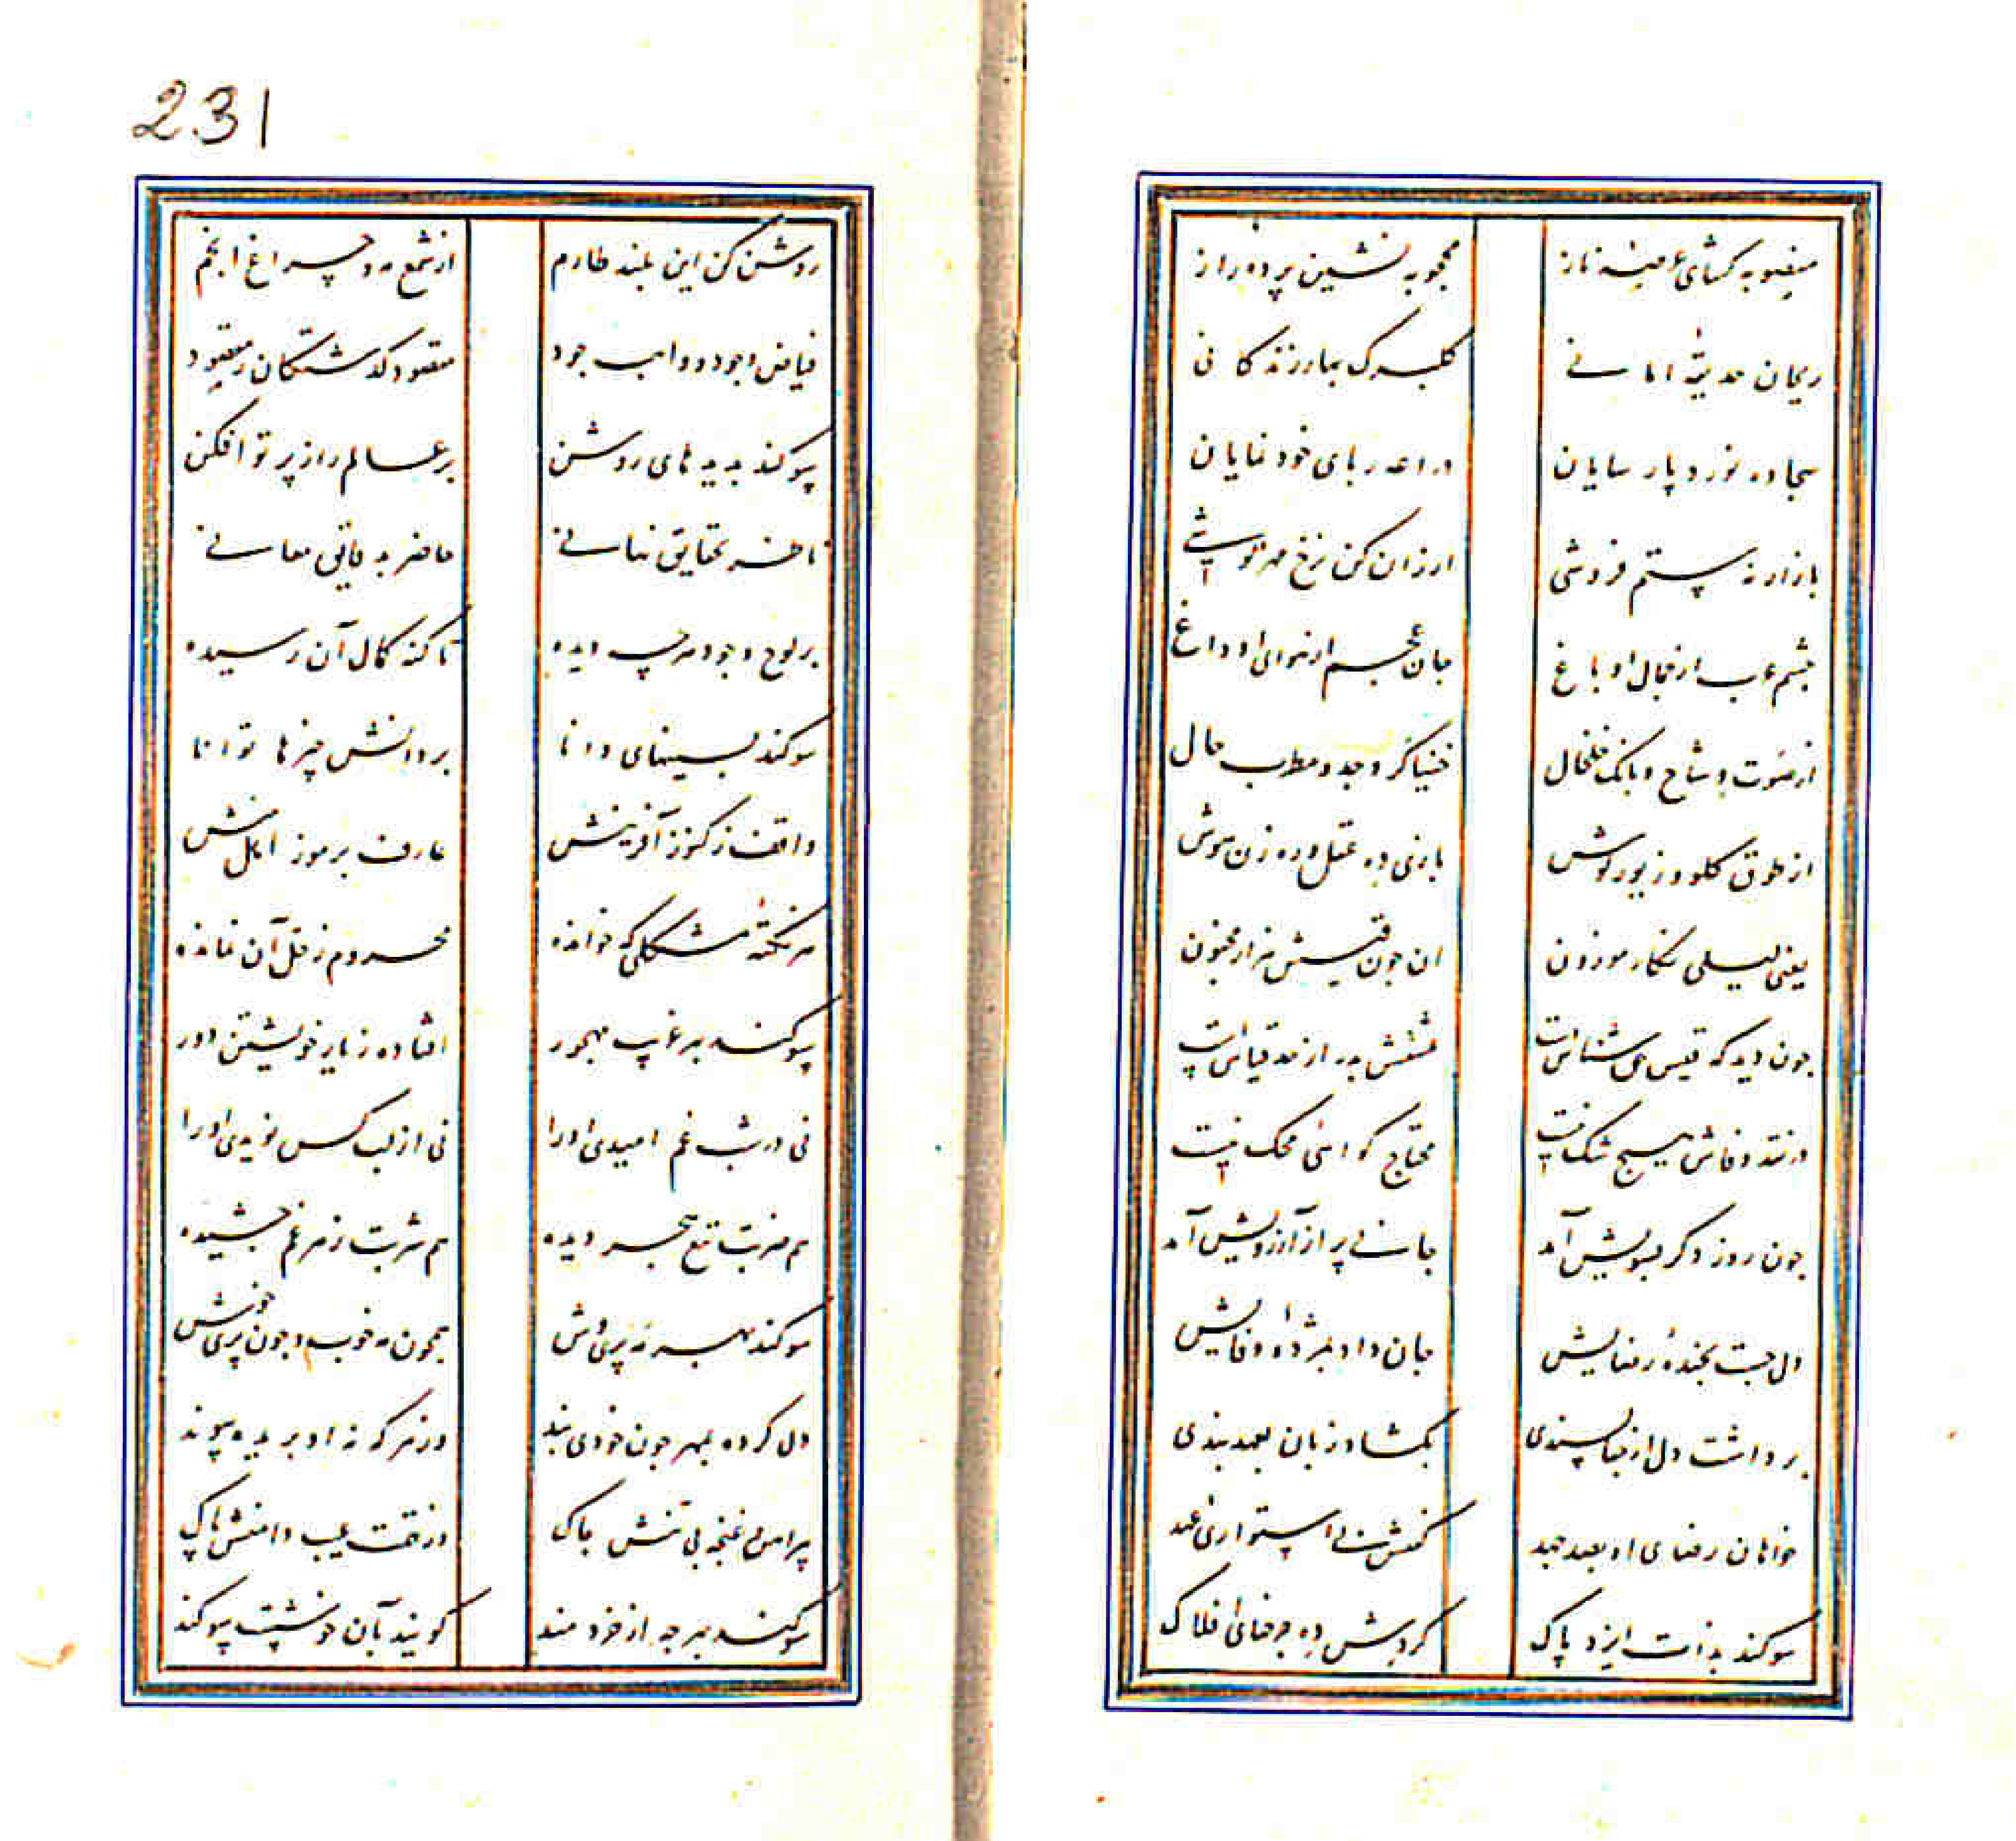 منصوبه کشای عرصهٔ ناز محجوبه نشین پردهٔ راز
ریحان حدیقهٔ امانی گلبرک بهار زندکانی
سجاده نورد پارسایان دراعه ربای خودنمایان
بازار نه ستم فروشی ارزان کن نرخ مهرپوشی
چشم عرب از جمال او باغ جان عجم از هوای او داغ
از صوت وشاح و بانک خلخال خنیاکر وجد و مطرب حال
از طوق کلو و زیور کوش بازی ده عقل و ره زن هوش
یعنی لیلی نکار موزون آن چون قیسش هزار مجنون
چون دید که قیس حق شناس است عشقش بدر از حد قیاس است
در نقد وفاش هیچ شک نیست محتاج کواهی محک نیست
چون روز دکر بسویش آمد جانی پر از آرزویش آمد
دل جست بخندهٔ رضایش جان داد بمژدهٔ وفایش
برداشت دل از جفاپسندی بکشاد زبان بعهدبندی
خواهان رضای او بصد جهد کفتش پی استواری عهد
سوکند بذات ایزد پاک کردش ده چرخهای افلاک
231
روشن کن این بلند طارم از شمع مه و چراغ انجم
فیاض وجود و واهب جود مقصود کذشتکان ز مقصود
سوکند بدیدهای روشن بر عالم راز پرتو افکن
ناظر بحقایق نهانی حاضر بدقایق معانی
بر لوح وجود هرچه دیده تا کنه کمال آن رسیده
سوکند بسینهای دانا بر دانش چیزها توانا
واقف ز کنوز آفرینش عارف برموز اهل بینش
هر نکتهٔ مشکلی که خوانده محروم ز حل آن نمانده
سوکند بهر غریب مهجور افتاده ز یار خویشتن دور
نی در شب غم امیدی او را نی از لب کس نویدی او را
هم ضربت تیغ هجر دیده هم شربت زهر غم چشیده
سوکند بهر مه پریوش همچون مه خوب و چون پری خوش
دل کرده بمهر چون خودی بند وز هر که نه او بریده پیوند
پیراهن غنچه بی تنش چاک وز تهمت عیب دامنش پاک
سوکند بهرچه از خردمند کویند بآن خوشست سوکند